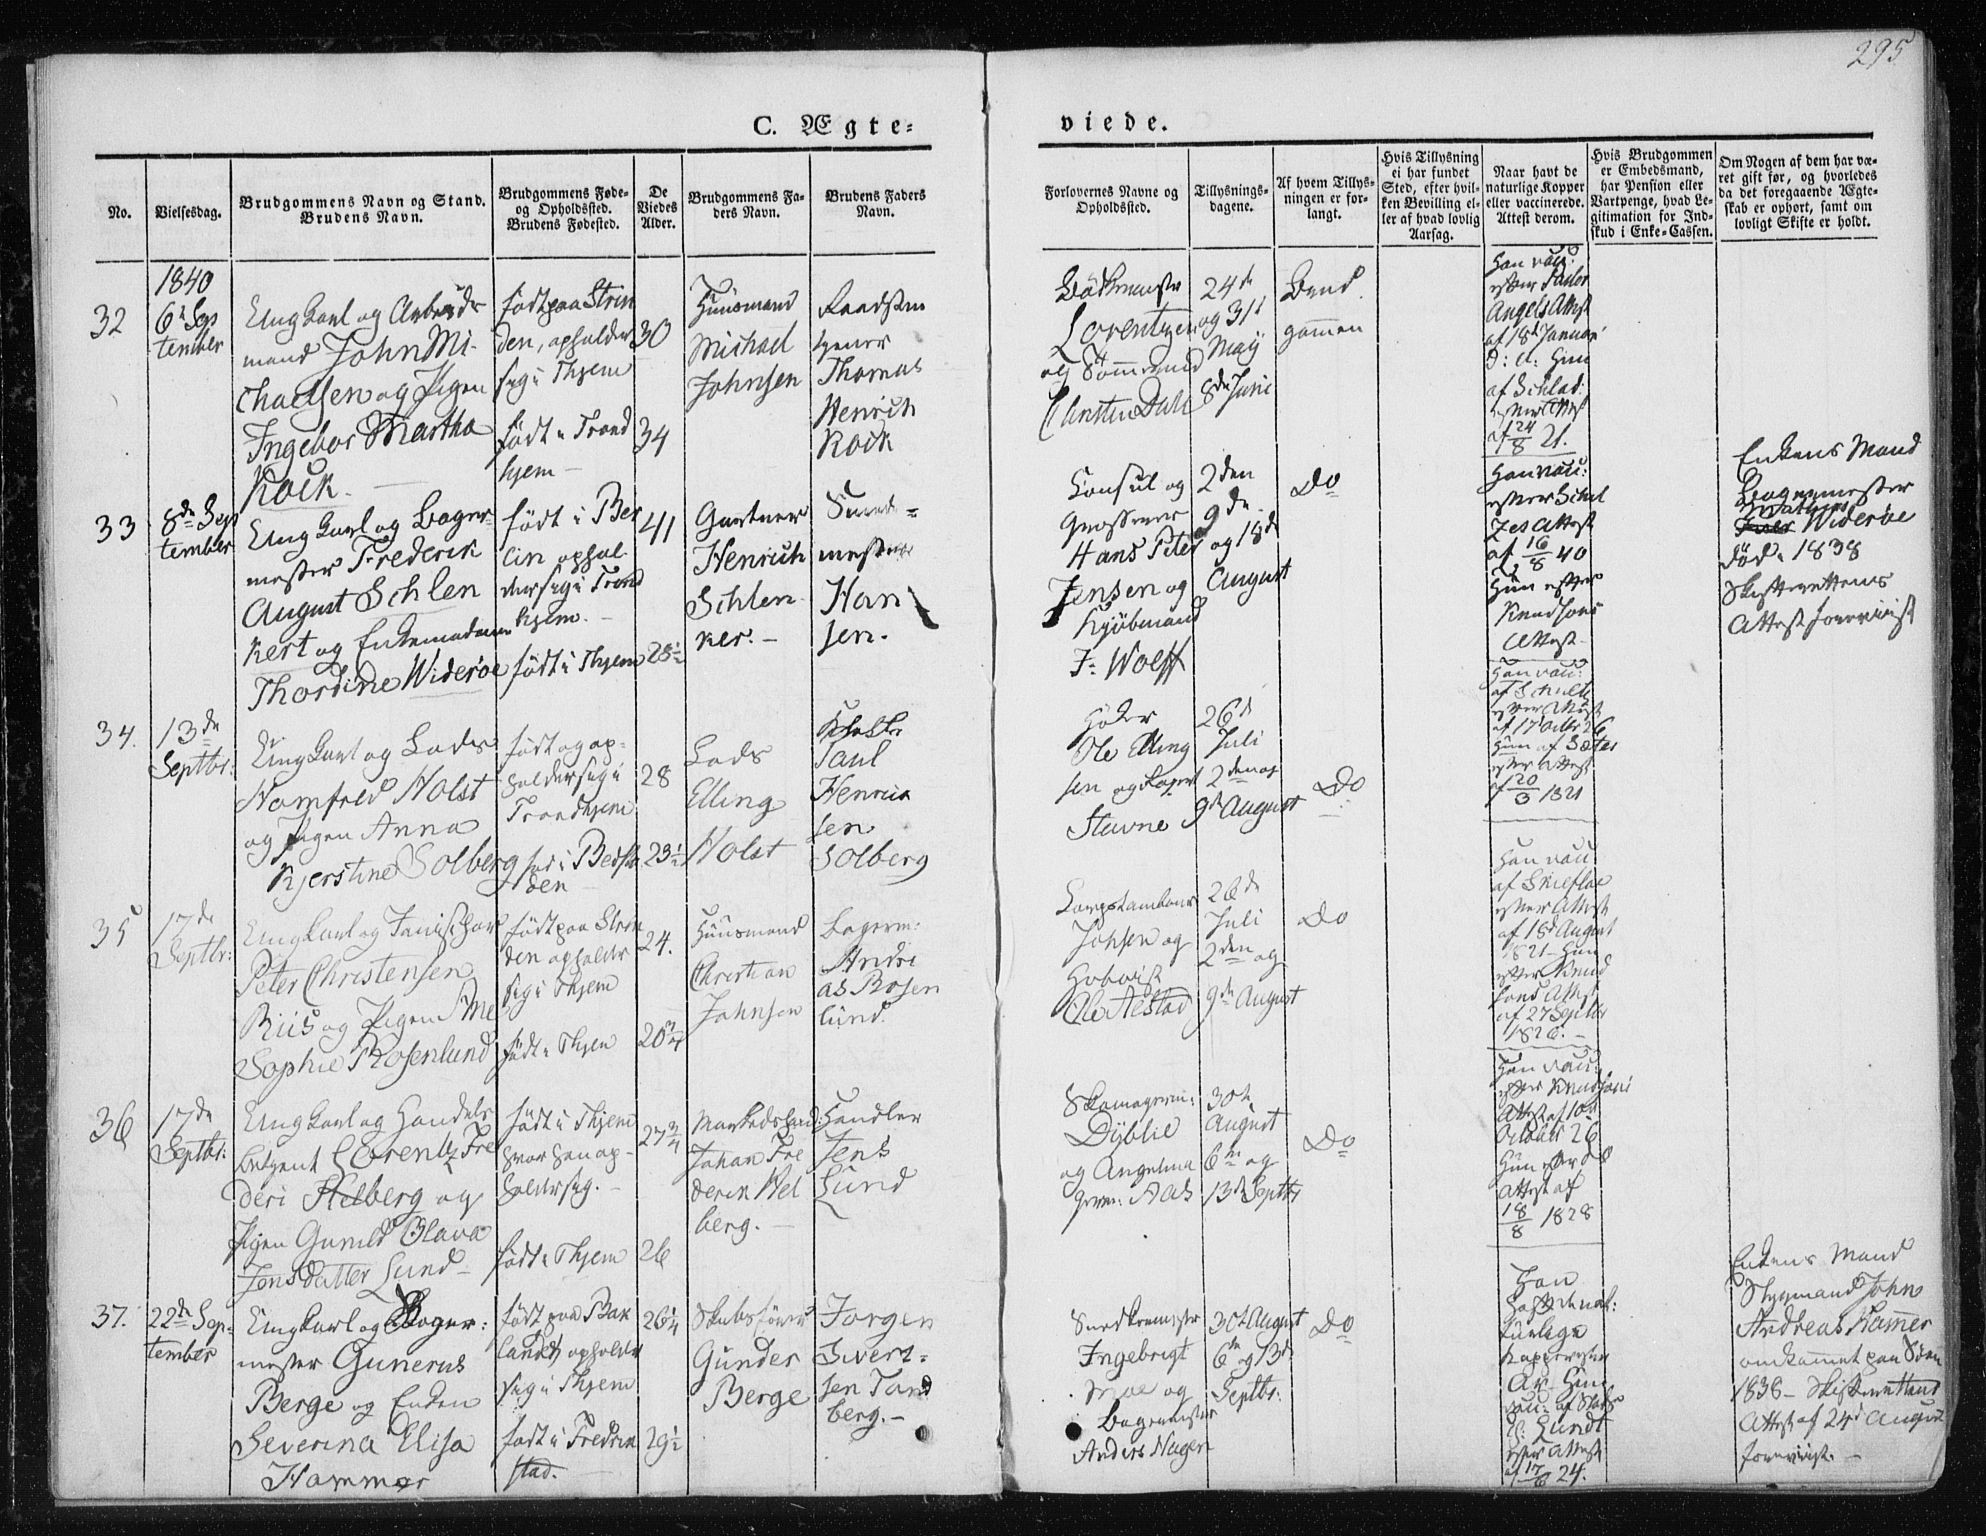 295
C. Ægte=
viede.
No.
Vielsesdag.
Brudgommens Navn og Stand.
Brudens Navn.
Brudgommens Føde=
og Opholdssted.
Brudens Fødested.
De
Viedes
Alder.
Brudgommens Fa=
ders Navn.
Brudens Faders
Navn.
Forlovernes Navne og
Opholdssted.
Tillysnings=
dagene.
Af hvem Tillys=
ningen er for=
langt.
Hvis Tillysning
ei har fundet
Sted, efter hvil=
ken Bevilling el=
ler af hvad lovlig
Aarsag.
Naar havt de
naturlige Kopper
eller vaccinerede.
Attest derom.
Hvis Brudgommen
er Embedsmand,
har Pension eller
Vartpenge, hvad Le=
gitimation for Ind=
skud i Enke=Cassen.
Om Nogen af dem har væ=
ret gift før, og hvorledes
da det foregaaende Ægte=
skab er ophørt, samt om
lovligt Skifte er holdt.
32
1840
6te Sep
tember
Ungkarl og Arbeids
mand John Mi-
chaelsen og Pigen
Ingebor Martha
Kock.
født paa Strin
den, opholder
sig i Thjem
født i Trond
hjem -
30
34
Huusmand
Michael
Johnsen
Thomas
Henrich
Kock
Lorentzen
og Sømmand
Carsten Dahl
24de
og 31t
May
8de Juni
Brud
gommen
Han vac:
efter
Angels Attest
af 18de Januar
Hun
efter Attest
af 24/8 21.
33
8de Sep
tember
Ungkarl og Bager-
mester Frederik
August Schlen
kert og Enkemadame
Thordine Widerøe
født i Ber
lin ophol-
der sig i Trond
hjem. -
født i Thjem
41
28½
Gartner
Henrich
Schlen
ker. -
mester
Han
sen.
Konsul og
Grosserer
Hans Peter
Jensen og
Kjøbmand
F: Wolff
2den
9de
og 18de
August
Do
Han vac:
efter Schul
zes Attest
af 16/8 40
Hun efter
Knudsons
Attest
Enkens Mand
Bagermester
Mathias
Widerøe
død i 1838
Skifterettens
Attest foreviist
34.
13de
Septbr:
Ungkarl og Lods
Nomfred Holst
og Pigen Anna
Kjerstine Solberg
født og op-
holder sig i
Trondhjem
født i Bedsta
den
28
23½
Lods
Elling
Holst
Paul
Henrik
sen
Solberg
Høker
Ole Elling
sen og
Stavne
26de
Juli
2den og
9de August
Do
Han vac:
af Schultz
efter Attest
af 17 Octbr 26
Hun af Sæter
efter Attest
af 20/3 1821
35
17de
Septbr:
Ungkarl og
Peter Christensen
Riis og Pigen Me
Sophie Rosenlund
født paa Strin
den opholder
sig i Thjem
født i Thjem
24.
20¾
Huusmand
Christian
Johnsen
Bagerm:
Andre
as Rosen
lund.
Johsen og
Ole Aestad
26de
Juli
2den og
9de August
Do
Han vac:
efter Attest
af 18de August
1821 Hun
efter Knud
sons Attest
af 27 Septbr
1826. -
36
17de
Septbr:
Ungkarl og Handels
betjent Lorentz Fre
deri Helberg og
Pigen Gunild Olava
Jensdatter Lund
født i Thjem
hvor han op-
holder sig. -
født i Thjem
27¾
26
Johan Fre
derik Hel
berg. -
Handler
Jens
Lund
Skomagerm:
Dyblie
og
germ: Aas
30te
August
6te og
13de Septbr
Do
Han vac:
efter Knudsons
Attest af 10de
October 26
Hun efter do
Attest af
18/8 1828
37.
22de Sep-
tember
Ungkarl og Bager:
mester Gunerus
Berge og Enken
Severina Elisa
Hammer
født paa Bak
landet opholder
sig i Thjem
født i Fredrik
stad. -
26¼
29½
Gunder
Berge
Jørgen
Sivert-
sen Tand
berg. -
Snedkermester
Ingebrigt
Moe og
Bagermester
Anders Hagen
30te August
6te og 13de
Septbr:
Do
Han
havt de nat:
turlige
Kopper efter
Hun
Lundt
efter Attest
af 17/6 24.
Enkens Mand
Styrmand Johns
Andreas Hamer
omkommet paa Søen
1838 - Skifterettens
Attest af 24de August
foreviist. -